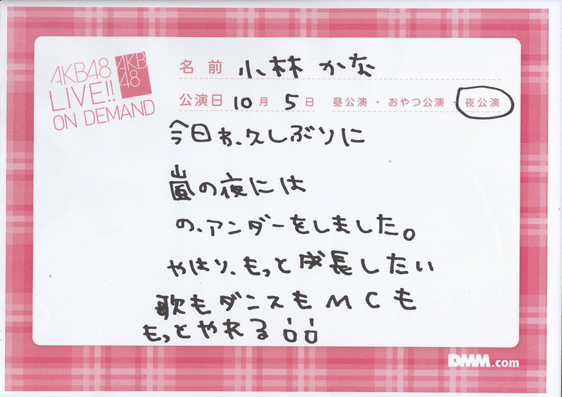 AKB48
LIVE!!
ON DEMAND
AKB
48
名前 小林 かな
公演日 10月 5日 昼公演・おやつ公演・夜公演
今日わ、久しぶりに
嵐の夜には
の、アンダーをしました。
やはり、もっと成長したい
歌もダンスもMCも
もっとやれる
DMM.com